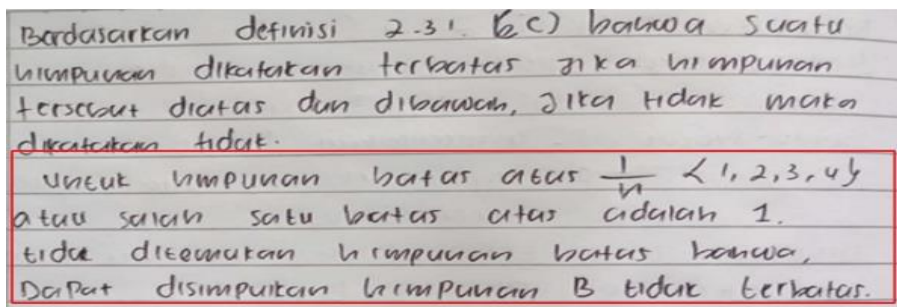 Berdasarkan definisi 2.3.1. (c) bahwa suatu
himpunan dikatakan terbatas jika himpunan
tersebut diatas dan dibawah, Jika tidak maka
dikatakan tidak.
Untuk himpunan batas atas 1/n {1, 2, 3, 4}
atau salah satu batas atas adalah 1.
tidak ditemukan himpunan batas bahwa,
Dapat disimpulkan himpunan B tidak terbatas.